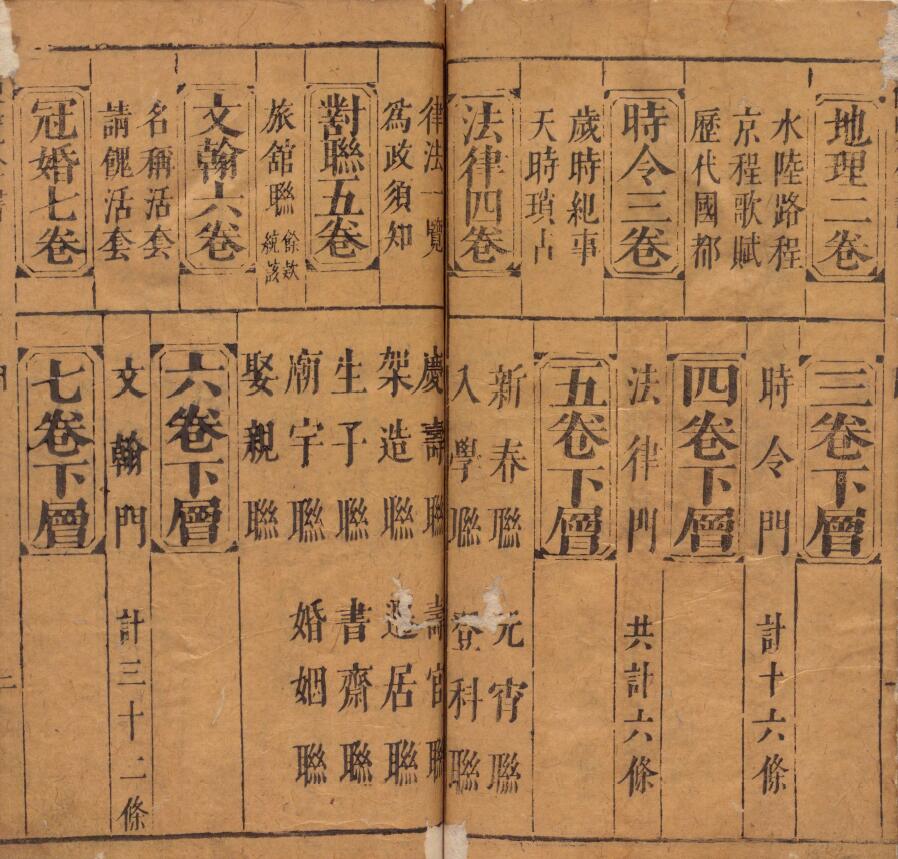 地理二卷
水陸路程
京程歌賦
歷代國都
時令三卷
歲時紀事
天時瑣占
法律四卷
三卷下層
時令門 計十六條
四卷下層
法律門 共計六條
五卷下層
新春聯 元宵聯
入學聯 登科聯
律法一覽
為政須知
對聯五卷
旅舘聯 餘欵統該
文翰六卷
名稱活套
請餽活套
冠婚七卷
慶壽聯 壽官聯
架造聯 遷居聯
生子聯 書齋聯
廟宇聯 婚姻聯
娶親聯
六卷下層
文翰門 計三十二條
七卷下層